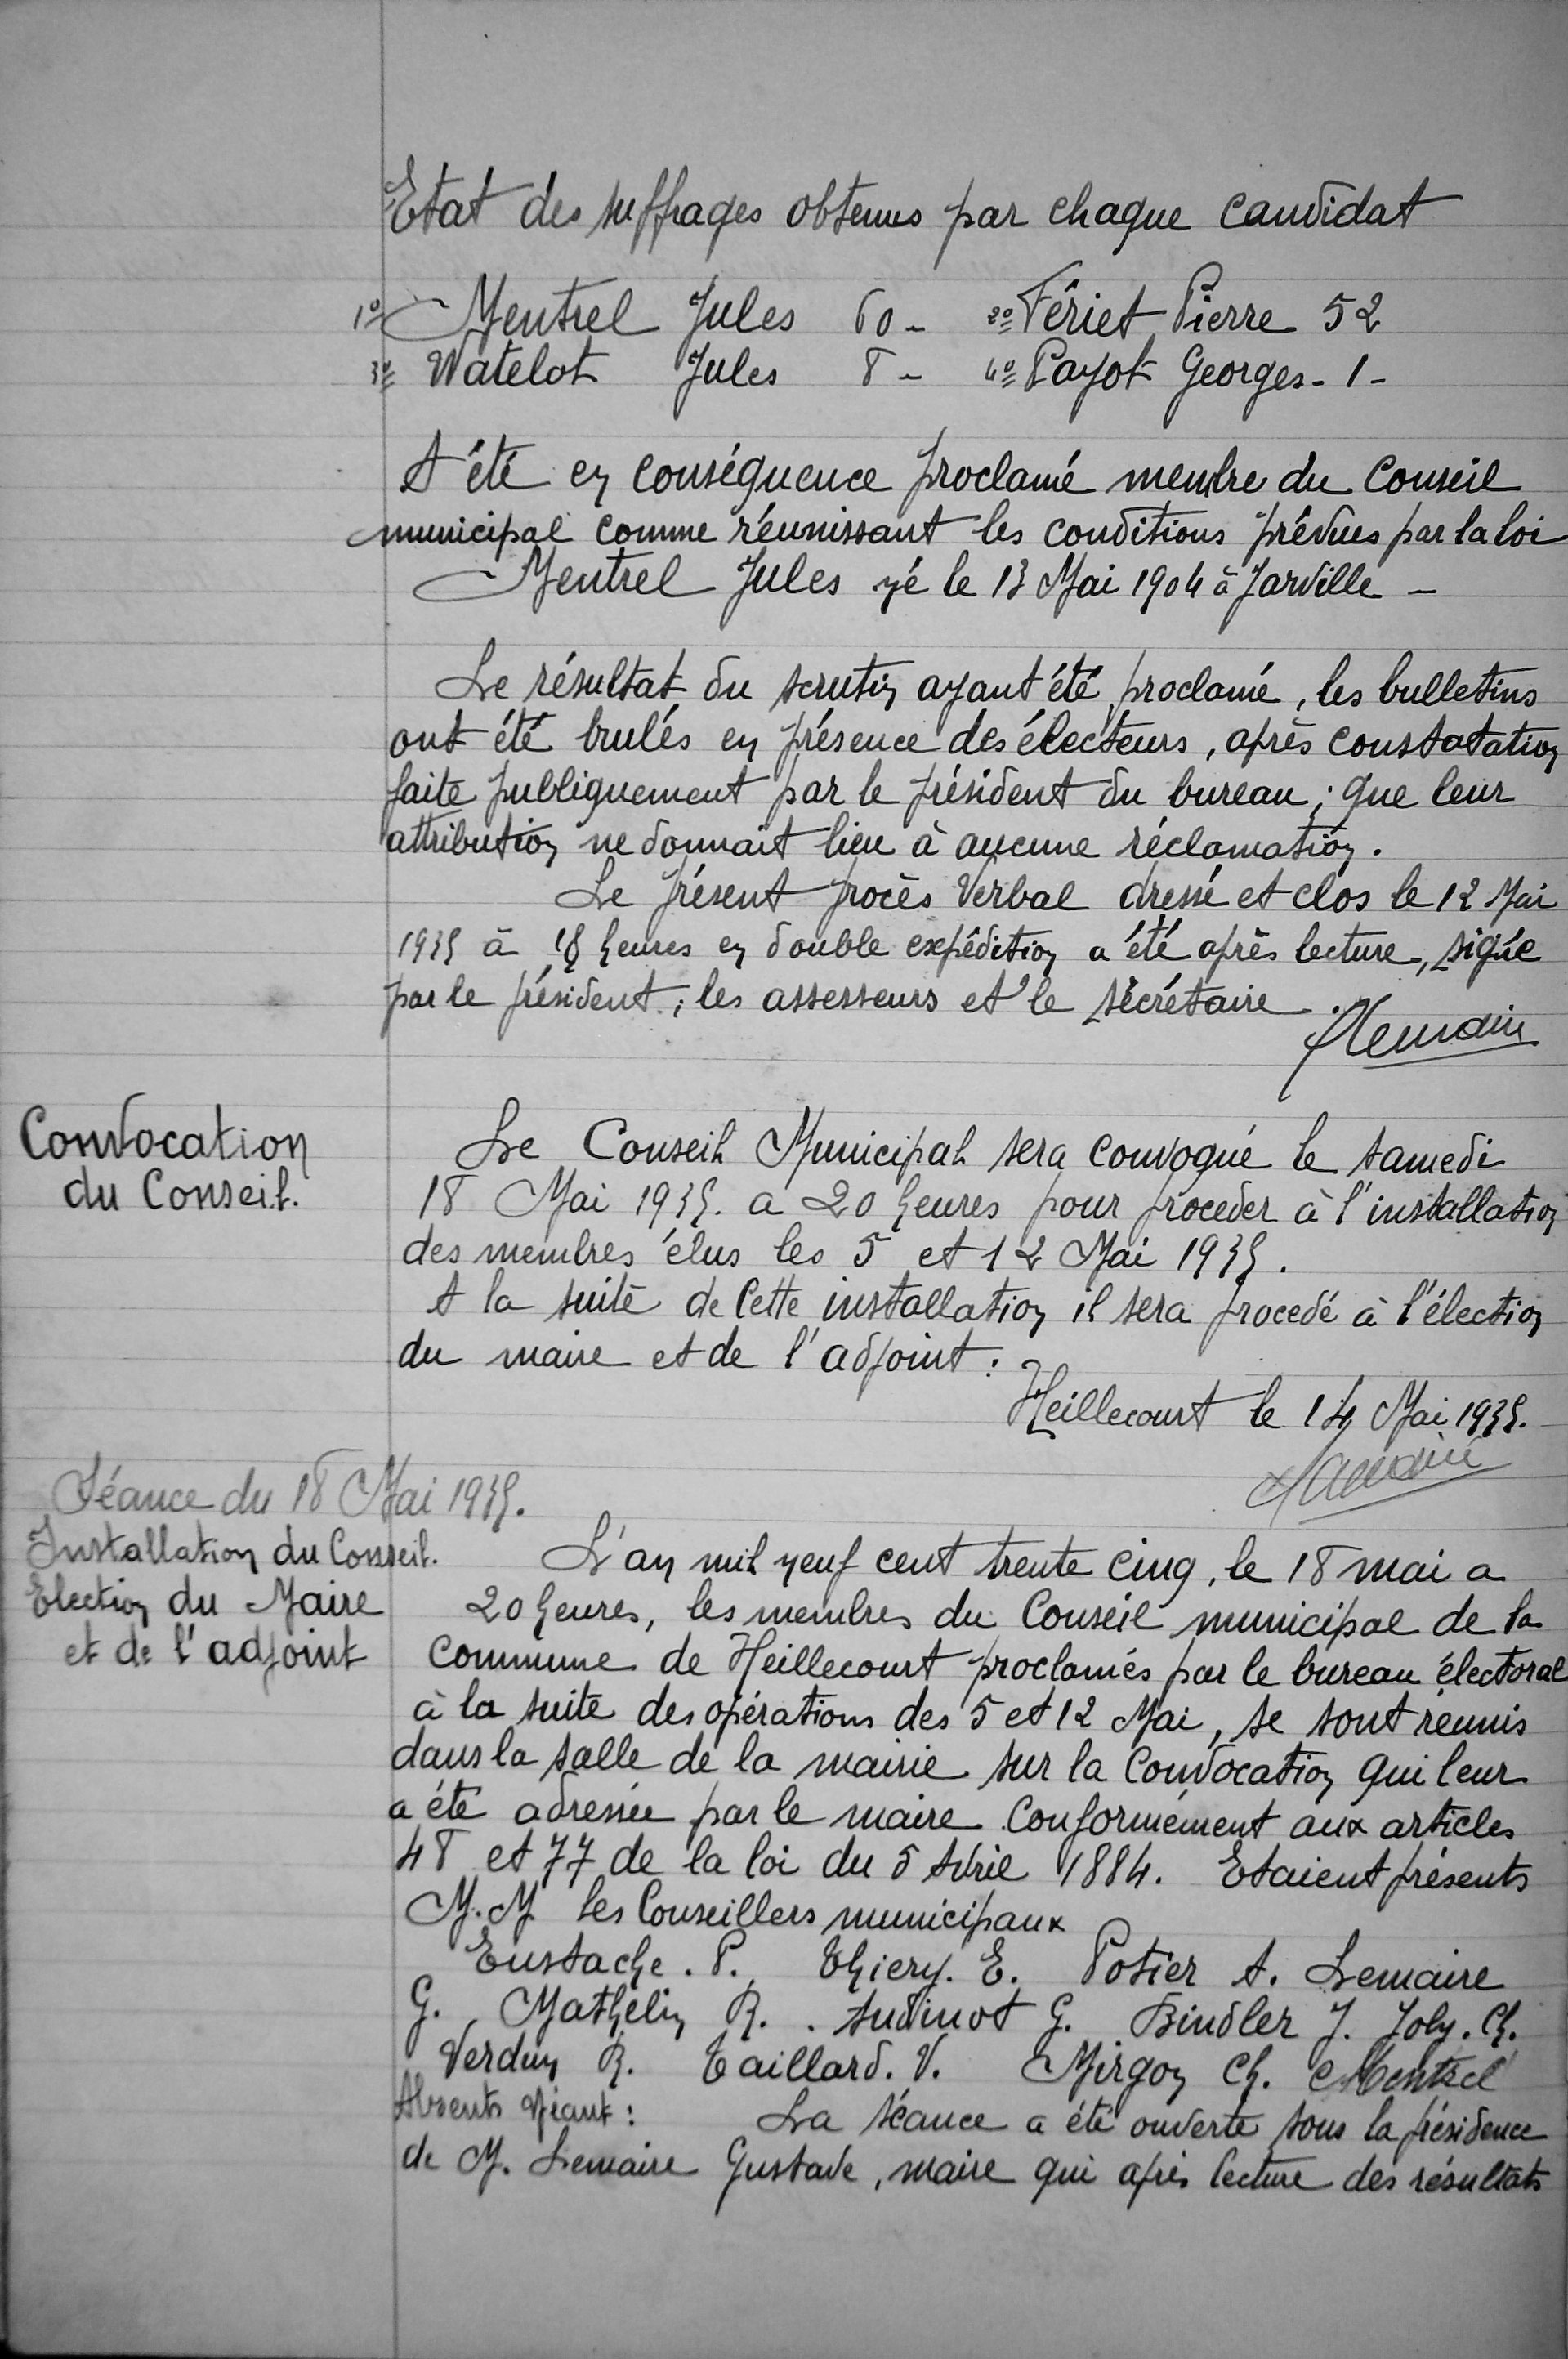 Etat des suffrages obtenus par chaque candidat
1º Mentrel Jules 60 - 2º Fériet Pierre 52
3º Watelot Jules 8 - 4º Payot Georges - 1 -
A été en conséquence proclamé membre du Conseil
municipal comme réunissant les conditions prévues par la loi
Mentrel Jules né le 13 Mai 1904 à Jarville -
Le résultat du scrutin ayant été proclamé, les bulletins
ont été brulés en présence des électeurs, après constatation
faite publiquement par le président du bureau ; que leur
attribution ne donnait lieu à aucune réclamation.
Le présent procès Verbal dressé et clos le 12 Mai
1935 à 18 heures en double expédition a été après lecture, signé
par le président, les assesseurs et le secrétaire.
Convocation
du Conseil.
Le Conseil Municipal sera convoqué le samedi
18 Mai 1935. a 20 heures pour procéder à l'installation
des membres élus les 5 et 12 Mai 1935.
A la suite de cette installation il sera procedé à l'élection
du maire et de l'adjoint :
Heillecourt le 14 Mai 1935.
Séance du 18 Mai 1935.
Installation du Conseil.
Election du Maire
et de l'adjoint
L'an mil neuf cent trente cinq, le 18 mai a
20 heures, les membres du Conseil municipal de la
Commune de Heillecourt proclamés par le bureau électoral
à la suite des opérations des 5 et 12 Mai, se sont réunis
dans la salle de la mairie sur la Convocation qui leur
a été adressée par le maire conformément aux articles
48 et 77 de la loi du 5 Avril 1884. Etaient présents
M.M les Conseillers municipaux
Eustache. P. Thiery. E. Potier A. Lemaire
G. Mathelin R. . Audinot G. Bindler J. Joly. Ch.
Verdun R. Taillard. V. Mirgon Ch. Mentrel
Absents Néant : La séance a été ouverte sous la présidence
de M. Lemaire Gustave, maire qui après lecture des résultats